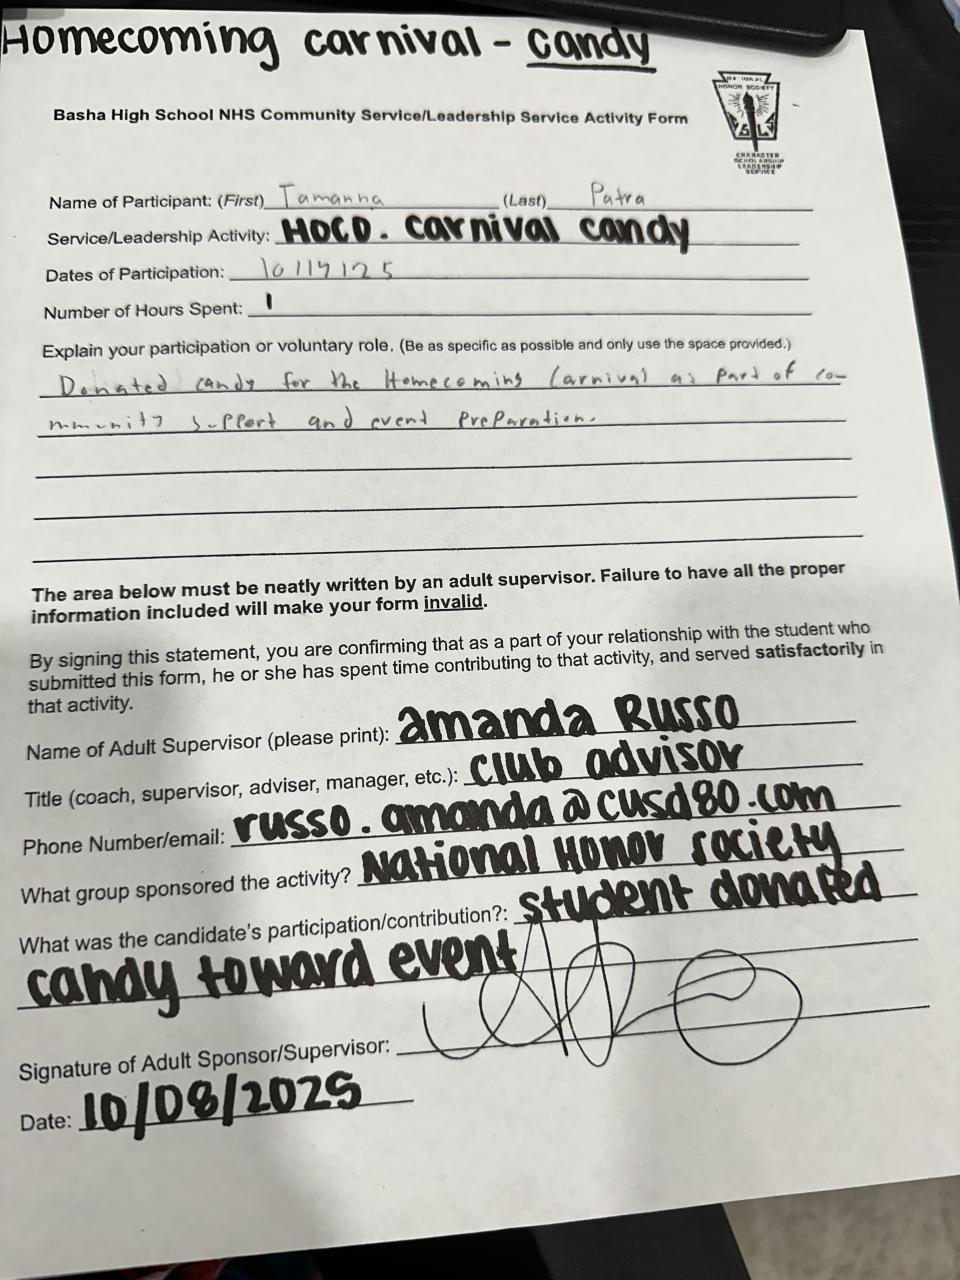 Homecoming carnival - candy
NATIONAL
HONOR SOCIETY
CHARACTER
SCHOLARSHIP
LEADERSHIP
SERVICE
Basha High School NHS Community Service/Leadership Service Activity Form
Name of Participant: (First) Tamanna (Last) Patra
Service/Leadership Activity: HOCO. carnival candy
Dates of Participation: 10/14/25
Number of Hours Spent: 1
Explain your participation or voluntary role. (Be as specific as possible and only use the space provided.)
Donated candy for the Homecoming Carnival as part of co-
mmunity support and event preparation.
The area below must be neatly written by an adult supervisor. Failure to have all the proper
information included will make your form invalid.
By signing this statement, you are confirming that as a part of your relationship with the student who
submitted this form, he or she has spent time contributing to that activity, and served satisfactorily in
that activity.
Name of Adult Supervisor (please print): amanda Russo
Title (coach, supervisor, adviser, manager, etc.): club advisor
Phone Number/email: russo.amanda@cusd80.com
What group sponsored the activity? National Honor society
What was the candidate's participation/contribution?: student donated
candy toward event
Signature of Adult Sponsor/Supervisor:
Date: 10/08/2025